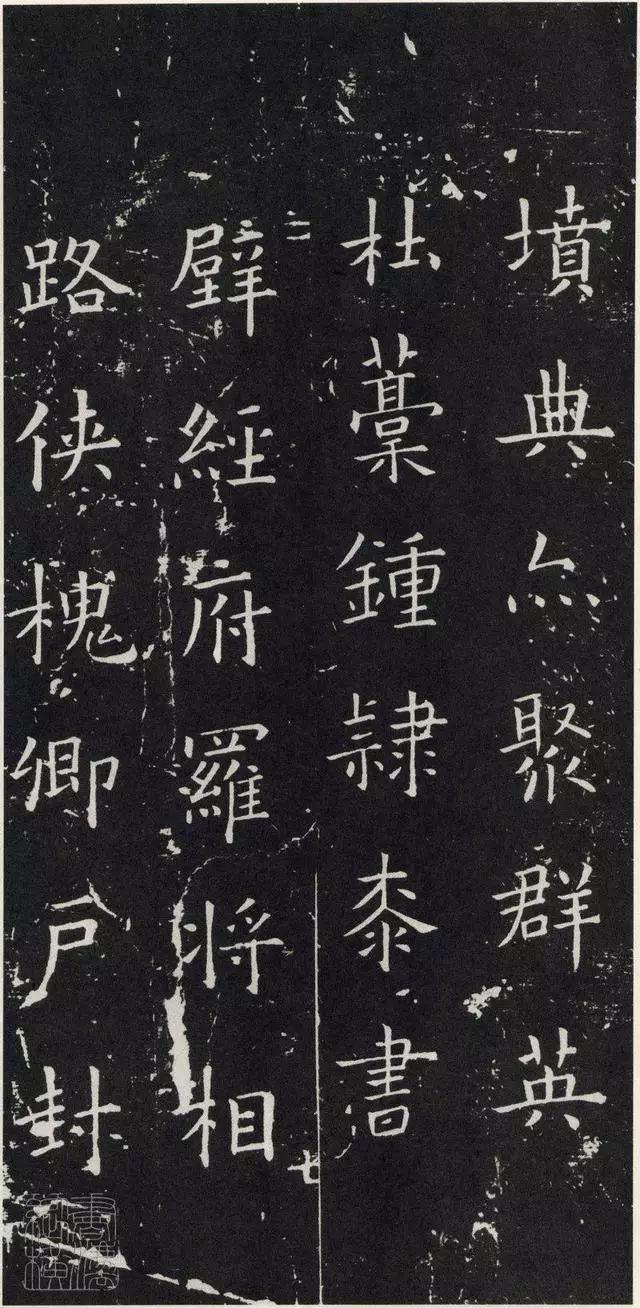 墳典亦聚群英
杜藁鍾隸桼書
壁經府羅將相
路俠槐卿户封
二
七